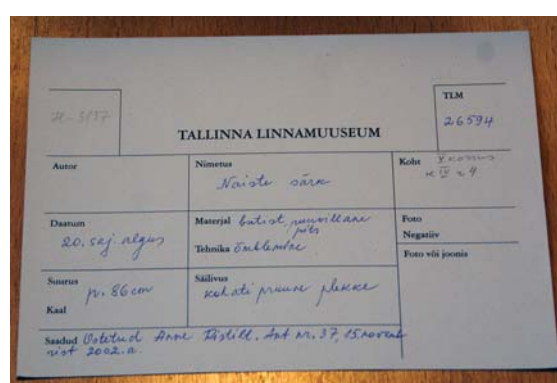 TLM
26594
TALLINNA LINNAMUUSEUM
Autor
Nimetus
Naiste särk
Koht
Daatum
20. saj algus
Materjal batist, puuvillane
pits
Tehnika õmblemine
Foto
Negatiiv
Foto või joonis
Suurus
p. 86 cm
Kaal
Säilivus
kohati pruune plekke
Saadud Ostetud Anne Akt nr. 37, 15. novemb
rist 2002.a.